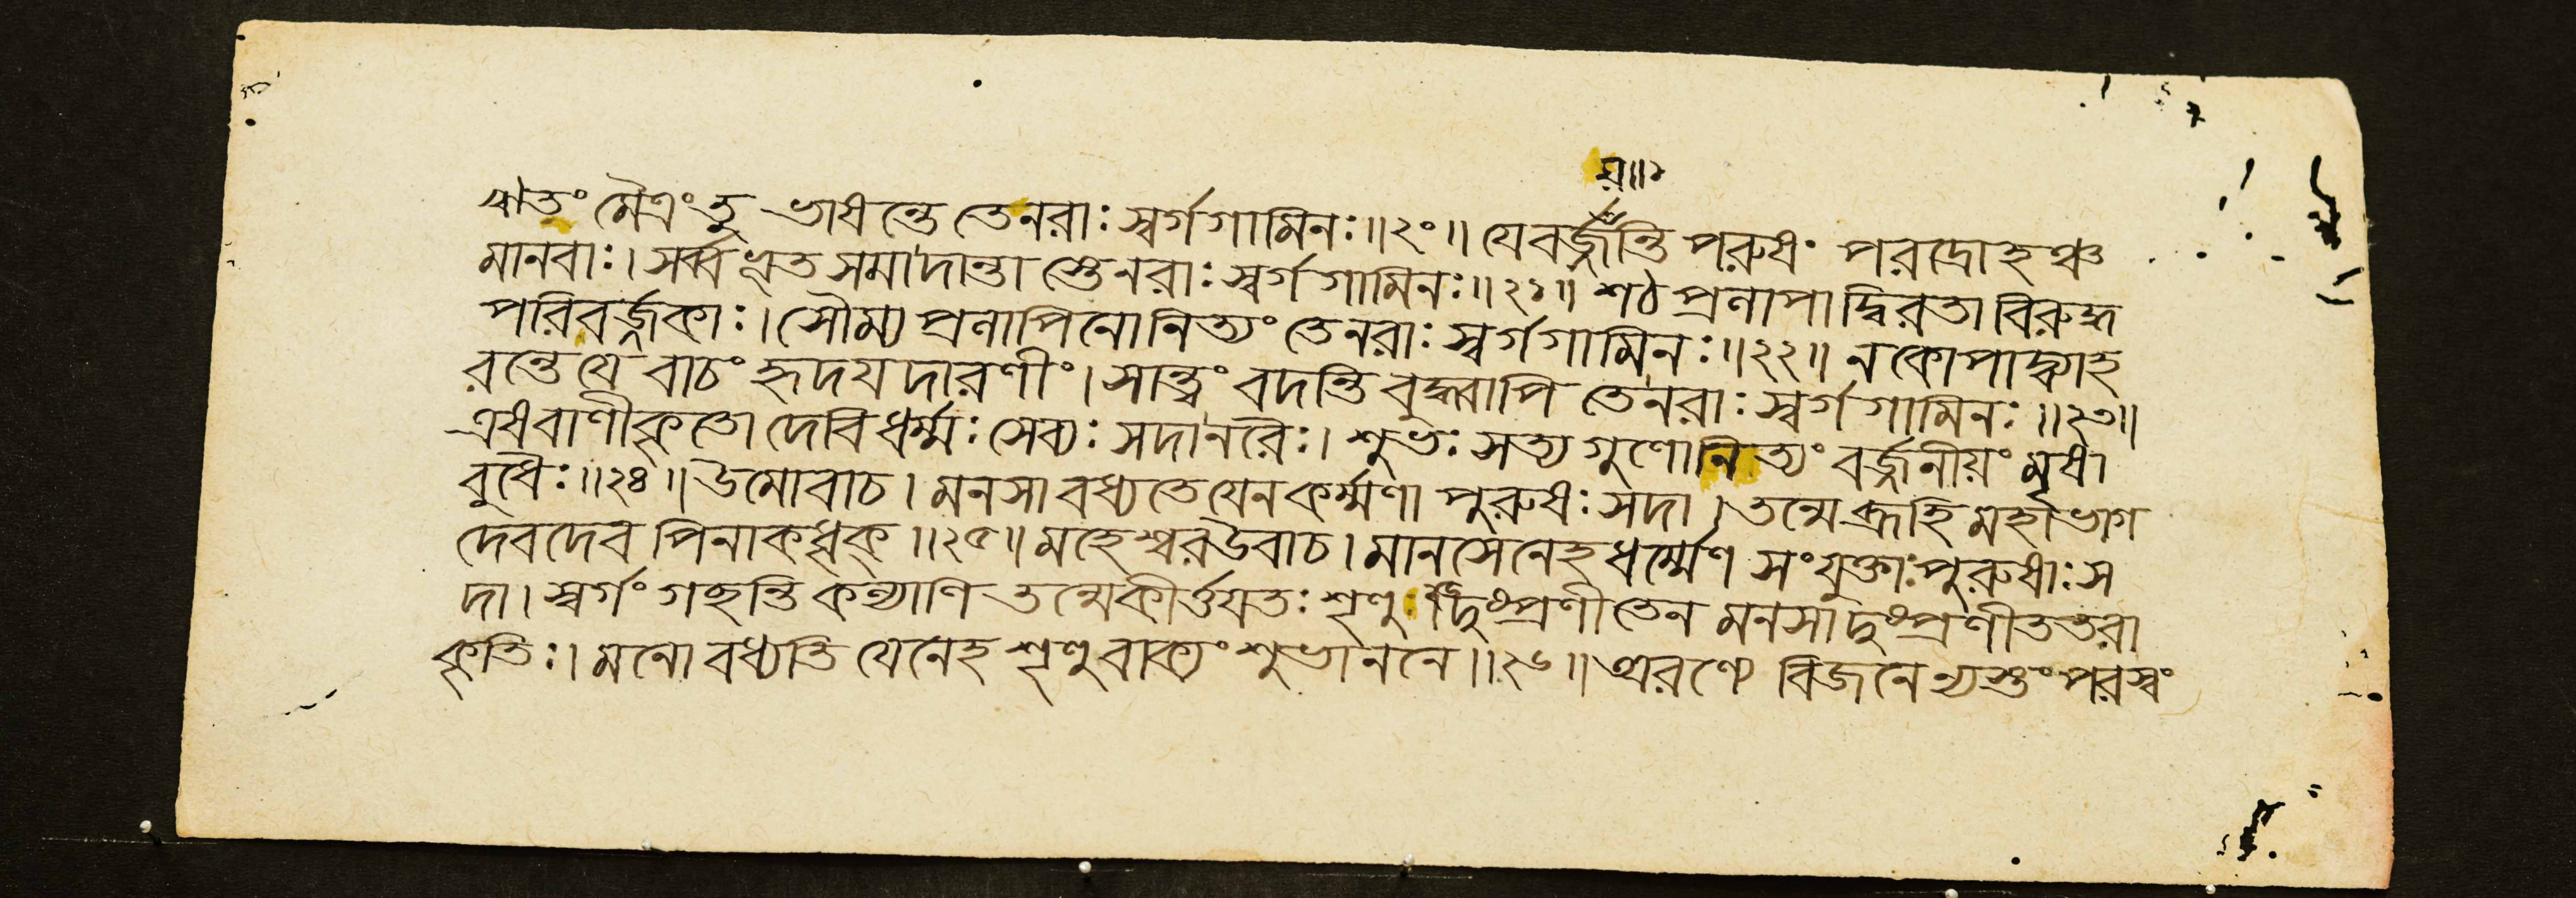 য়॥১
ঋতং মৈত্রং তু ভাষন্তে তেনরাঃ স্বর্গগামিনঃ॥২০॥ যেবর্জ্জন্তি পরুষং পরদ্রোহঞ্চ
মানবাঃ। সর্ব্বভূত সমাদান্তা স্তেনরাঃ স্বর্গগামিনঃ॥২১॥ শঠপ্রলাপাদ্বিরতা বিরুদ্ধ
পরিবর্জ্জকাঃ। সৌম্য প্রলাপিনোনিত্যং তেনরাঃ স্বর্গগামিনঃ॥২২॥ নকোপাদ্ব্যাহ
রন্তে যে বাচং হৃদয়দারণীং। সান্ত্বং বদন্তি ক্রুদ্ধ্বাপি তেনরাঃ স্বর্গগামিনঃ॥২৩॥
এষবাণীকৃতো দেবি ধর্ম্মঃ সেব্যঃ সদানরৈঃ। শুভঃ সত্যগুণোনিত্যং বর্জ্জনীয়ং মৃষা
বুধৈঃ॥২৪॥ উমোবাচ। মনসা বধ্যতে যেন কর্ম্মণা পুরুষঃ সদা। তন্মে ব্রূহি মহাভাগ
দেবদেব পিনাকধৃক্॥২৫॥ মহেশ্বরউবাচ। মানসেনেহ ধর্ম্মেণ সংযুক্তাঃ পুরুষাঃ স
দা। স্বর্গং গচ্ছন্তি কল্যাণি তন্মেকীর্ত্তয়তঃ শৃণু দুঃপ্রণীতেন মনসা দুঃপ্রণীততরা
কৃতিঃ। মনো বধ্যতি যেনেহ শৃণু বাক্যং শুভাননে॥২৬॥ অরণ্যে বিজনে ন্যস্তং পরস্বং